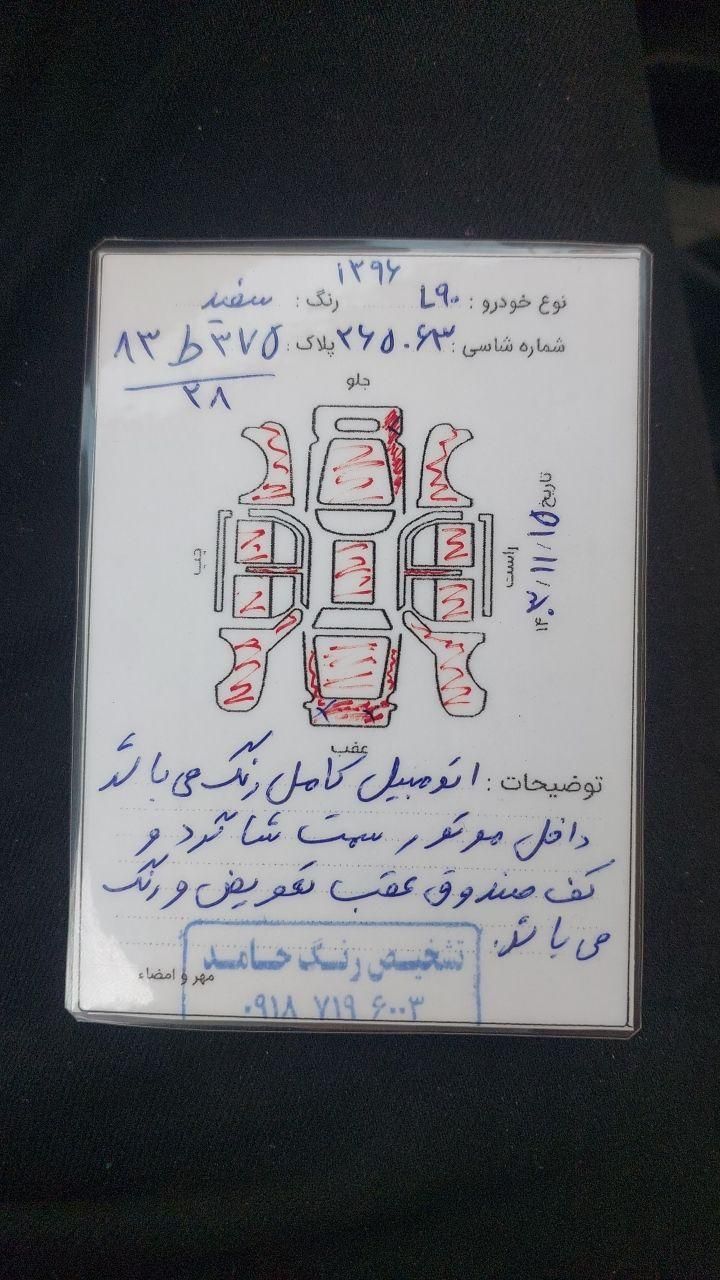 ۱۳۹۶
نوع خودرو : L۹۰ رنگ : سفید
شماره شاسی : ۲۶۵۰۶۳ پلاک : ۸۳ ط ۳۷۵
۳۸
جلو
تاریخ ۱۴۰۳/۱۱/۱۵
راست
چپ
عقب
توضیحات : اتومبیل کامل رنگ می باشد
داخل موتور سمت شاگرد و
کف صندوق عقب تعویض و رنگ
می باشد.
مهر و امضاء
تشخیص رنگ حامد
۰۹۱۸ ۷۱۹ ۶۰۰۳